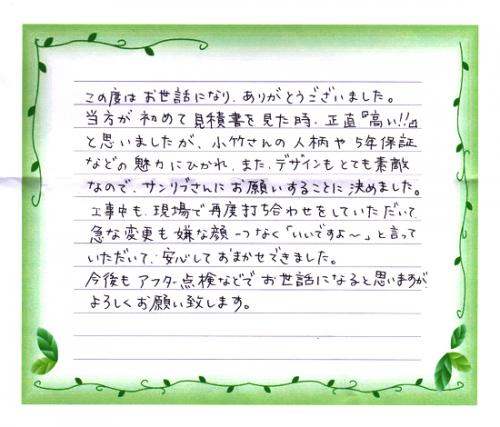 この度はお世話になり、ありがとうございました。
当方が初めて見積書を見た時、正直『高い!!』
と思いましたが、小竹さんの人柄や5年保証
などの魅力にひかれ、また、デザインもとても素敵
なので、サンリブさんにお願いすることに決めました。
工事中も、現場で再度打ち合わせをしていただいて、
急な変更も嫌な顔一つなく「いいですよ〜」と言って
いただいて、安心しておまかせできました。
今後もアフター点検などでお世話になると思いますが、
よろしくお願い致します。